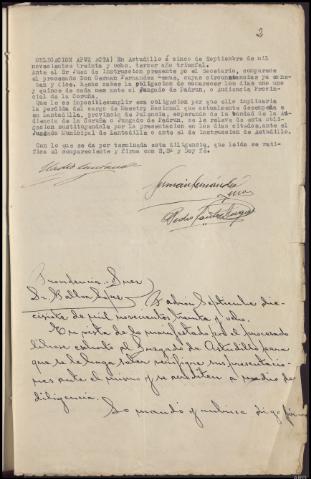 2
OBLIGACION APUD ACTA: En Astudillo á cinco de Septiembre de mil
novecientos treinta y ocho, tercer año triunfal.
Ante el Sr Juez de Instruccion presente yo el Secretario, comparece
el procesado Don German Fernandez cuyas circunstancias ya constan
y dice, Que sobre la obligacion de comparecer los dias uno
y quince de cada mes ante el Juzgado de Padron, o Audiencia Provincial
de la Coruña.
Que le es imposible cumplir esa obligacion por que ello implicaria
la perdida del cargo de Maestro Nacional que actualmente desempeña en
Lantadilla, provincia de Palencia, esperando de la bondad de la Audiencia
de la Coruña o Juzgado de Padron, se le releve de esta obligacion
sustituyendola por la presentacion en los dias citados, ante el
Juzgado Municipal de Lantadilla o ante el de Instruccion de Astudillo.
Con lo que se da por terminada esta diligencia, que leida se ratifica
el compareciente y firma con S.Sª y Doy fé.
German Fernández
Pedro
Providencia Juez
Sr. López Padron Septiembre diecisiete
de mil novecientos treinta y ocho.
En vista de lo manifestado por el procesado
dirijase exhorto al Juzgado de Astudillo para
que se le haga saber verifique sus presentaciones
ante el mismo y se acrediten a medio de
diligencia.
Lo mandó y rubrica S.Sª doy fe